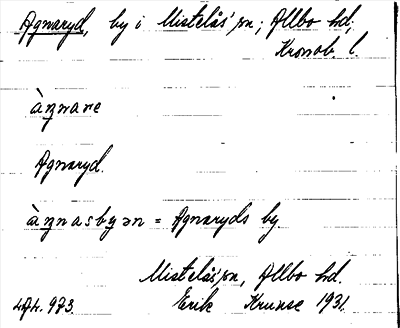 Agnaryd, by i Mistelås' sn; Allbo hd;
Kronob. l.
àŋnare
Agnaryd.
àŋnasbyən = Agnaryds by
Mistelås' sn, Allbo hd.
Erik Krunse 1931.